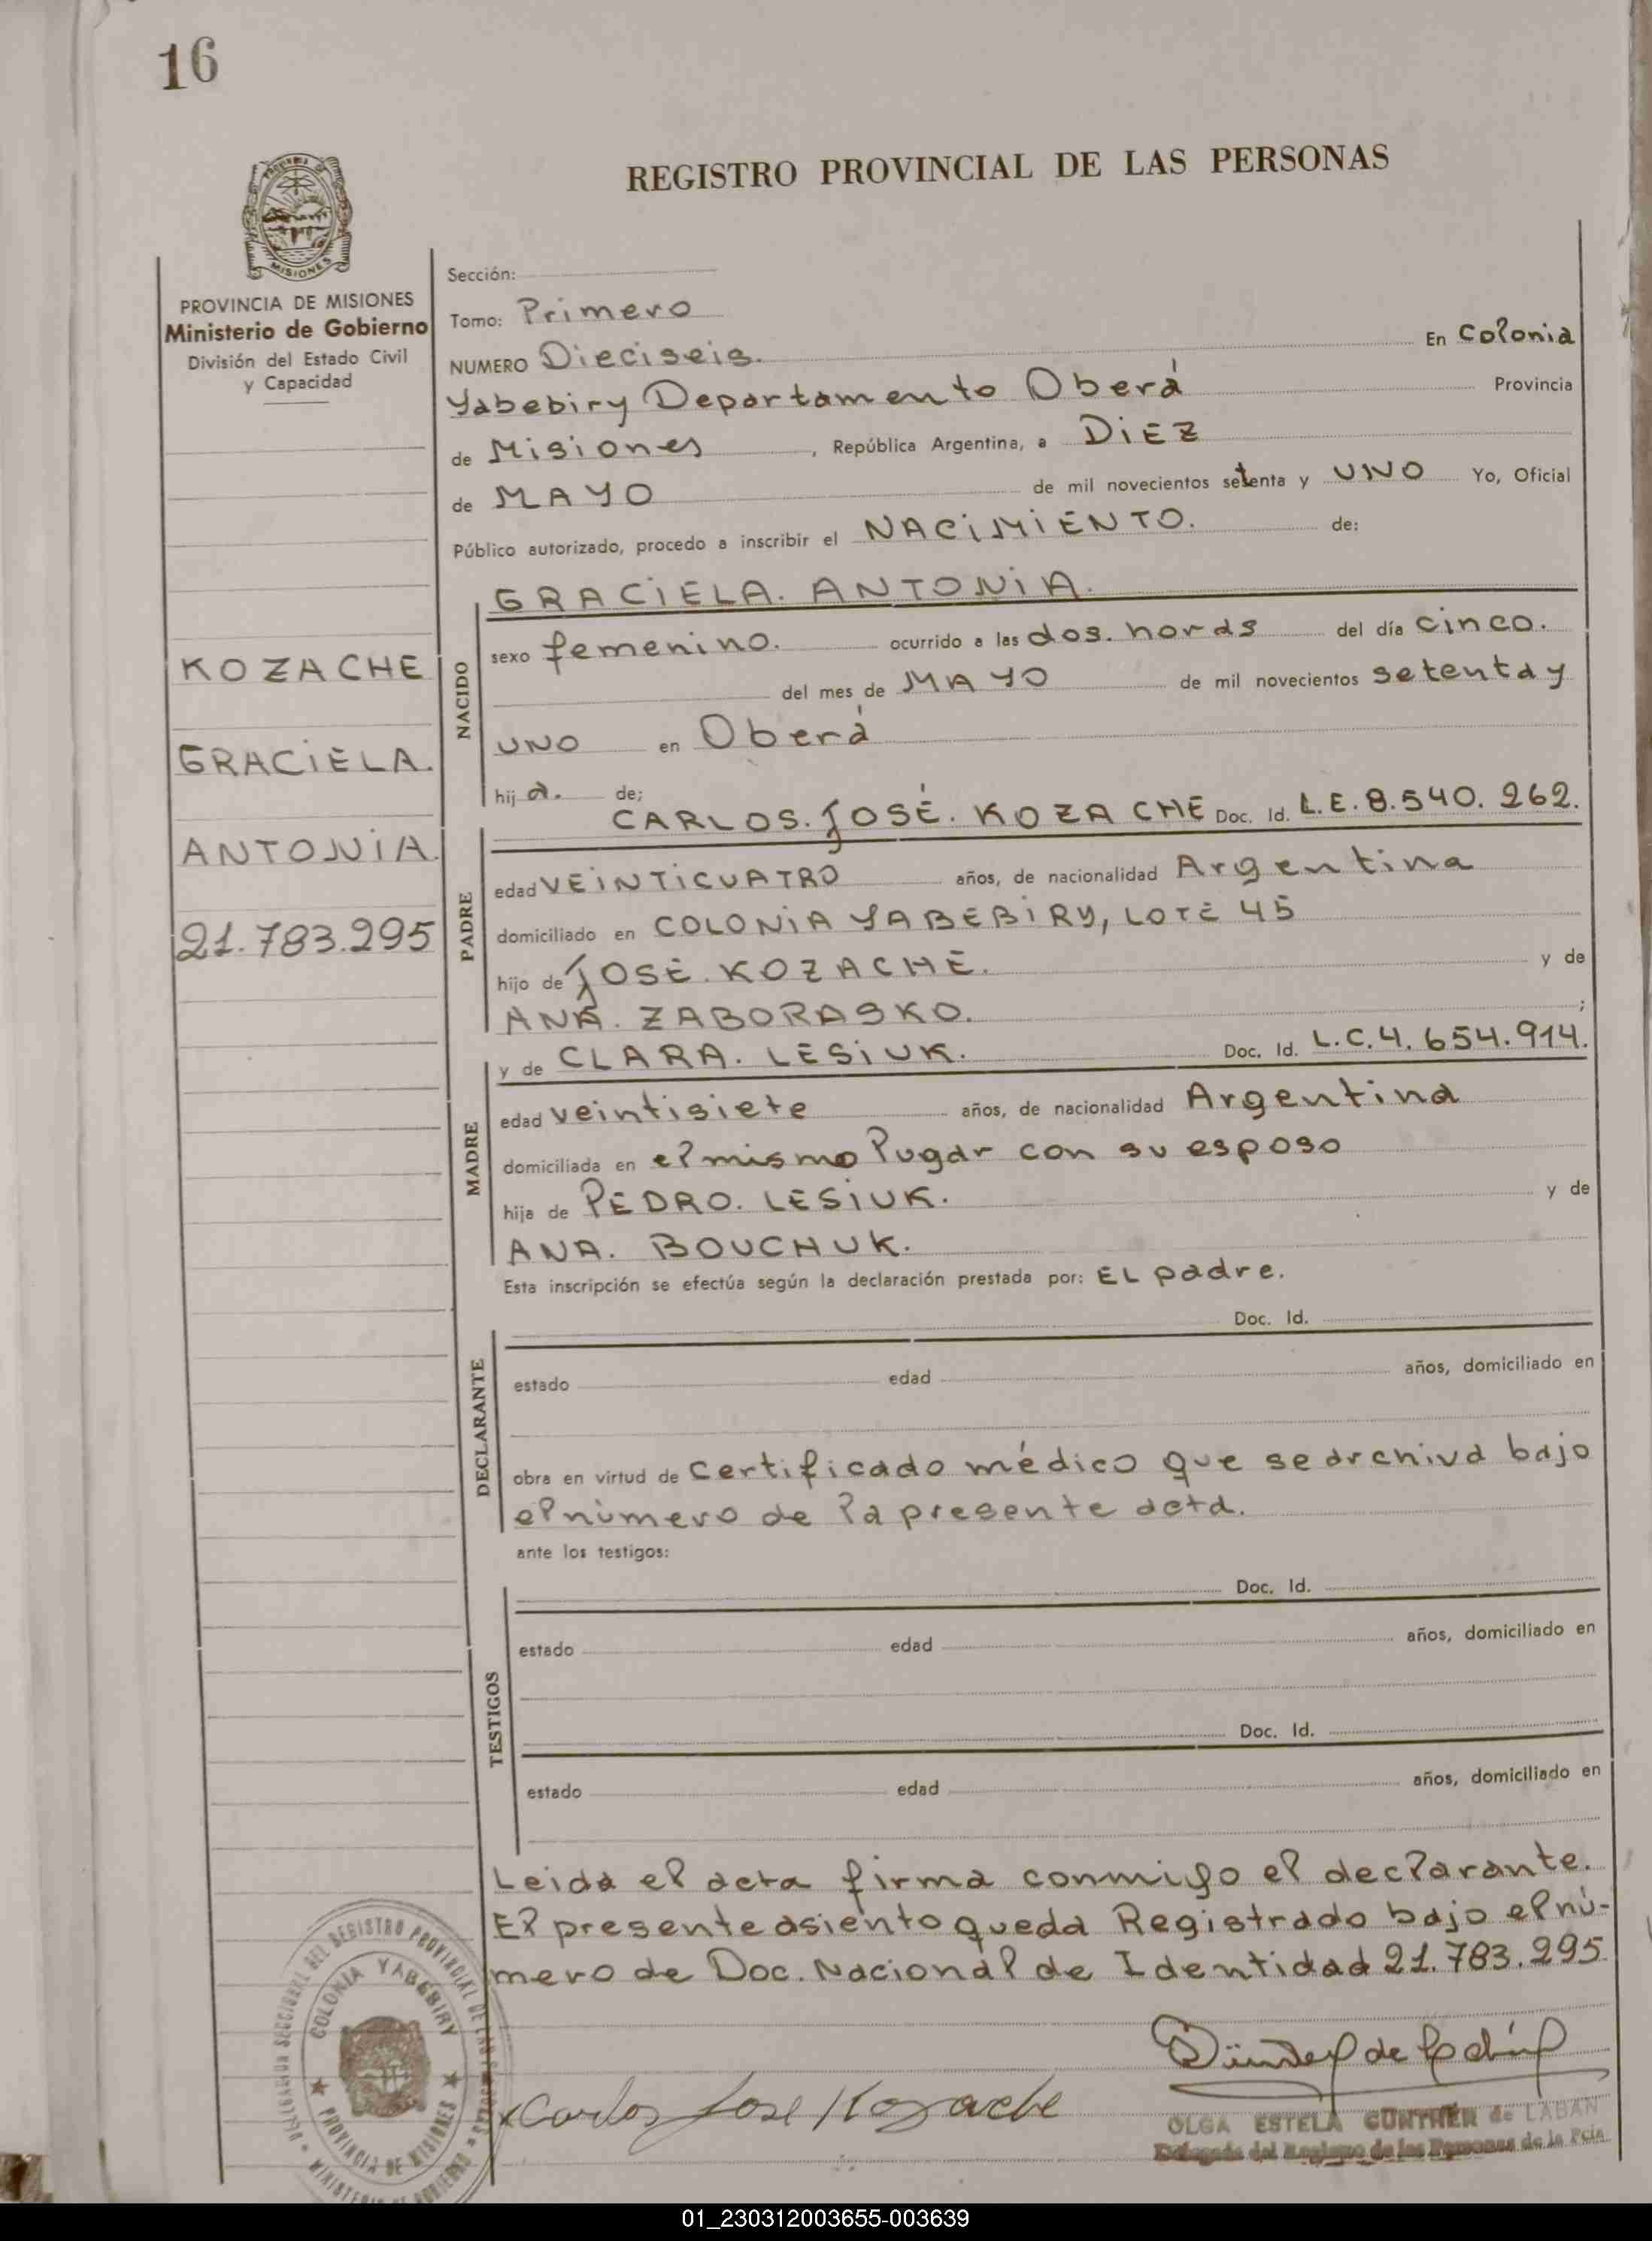 16
REGISTRO PROVINCIAL DE LAS PERSONAS
MISIONES
PROVINCIA DE MISIONES
Ministerio de Gobierno
División del Estado Civil
y Capacidad
KOZACHE
GRACIELA.
ANTONIA.
21.783.295
Sección:
Tomo: Primero
NUMERO Dieciseis. En Colonia
Yabebiry Departamento Oberá Provincia
de Misiones, República Argentina, a DIEZ
de MAYO de mil novecientos setenta y UNO Yo, Oficial
Público autorizado, procedo a inscribir el NACIMIENTO. de:
NACIDO
GRACIELA. ANTONIA.
sexo femenino. ocurrido a las dos. horas del día cinco.
del mes de MAYO de mil novecientos setenta y
UNO en Oberá
hij a. de;
PADRE
CARLOS. JOSÉ. KOZACHE Doc. Id. L.E. 8.540.262.
edad VEINTICUATRO años, de nacionalidad Argentina
domiciliado en COLONIA YABEBIRY, LOTE 45
hijo de JOSÉ. KOZACHE. y de
ANA. ZABORASKO. ;
MADRE
y de CLARA. LESIUK. Doc. Id. L.C. 4.654.914.
edad veintisiete años, de nacionalidad Argentina
domiciliada en el mismo lugar con su esposo
hija de PEDRO. LESIUK. y de
ANA. BOUCHUK.
Esta inscripción se efectúa según la declaración prestada por: EL padre.
DECLARANTE
Doc. Id.
estado edad años, domiciliado en
obra en virtud de certificado médico que se archiva bajo
el número de la presente acta.
ante los testigos:
TESTIGOS
Doc. Id.
estado edad años, domiciliado en
Doc. Id.
estado edad años, domiciliado en
Leida el acta firma conmigo el declarante.
El presente asiento queda Registrado bajo el nú-
mero de Doc. Nacional de Identidad 21.783.295.
COLONIA YABEBIRY
PROVINCIA DE MISIONES
Carlos Jose Kozache
OLGA ESTELA GÜNTHER de LABAN
Delegada del Registro de las Personas de la Pcia.
01_230312003655-003639